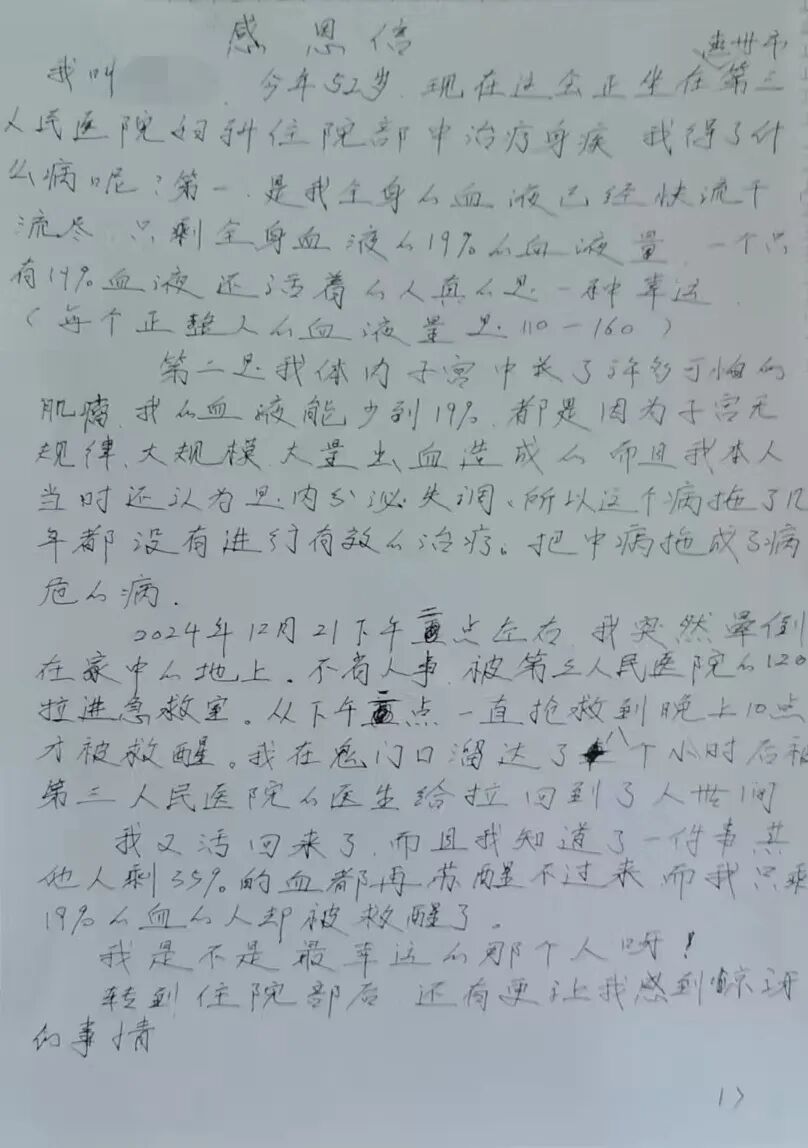 感恩信
惠州市
我叫 今年52岁.现在这会正坐在第三
人民医院妇科住院部中治疗身疾 我得了什
么病呢?第一.是我全身的血液已经快流干
流尽.只剩全身血液的19%的血液量.一个只
有19%血液还活着的人真的是一种幸运.
(每个正整人的血液量是110-160)
第二是我体内子宫中长了许多可怕的
肌瘤.我的血液能少到19%.都是因为子宫无
规律、大规模、大量出血造成的 而且我本人
当时还认为是内分泌失调、所以这个病拖了几
年都没有进行有效的治疗。把中病拖成了病
危的病.
2024年12月21下午二点左右.我突然晕倒
在家中的地上.不省人事.被第三人民医院的120
拉进急救室。从下午二点一直抢救到晚上10点
才被救醒。我在鬼门口溜达了八个小时后被
第三人民医院的医生给拉回到了人世间
我又活回来了.而且我知道了一件事其
他人剩35%的血都再苏醒不过来 而我只剩
19%的血的人却被救醒了。
我是不是最幸运的那个人呀!
转到住院部后 还有更让我感到惊讶
的事情
1>